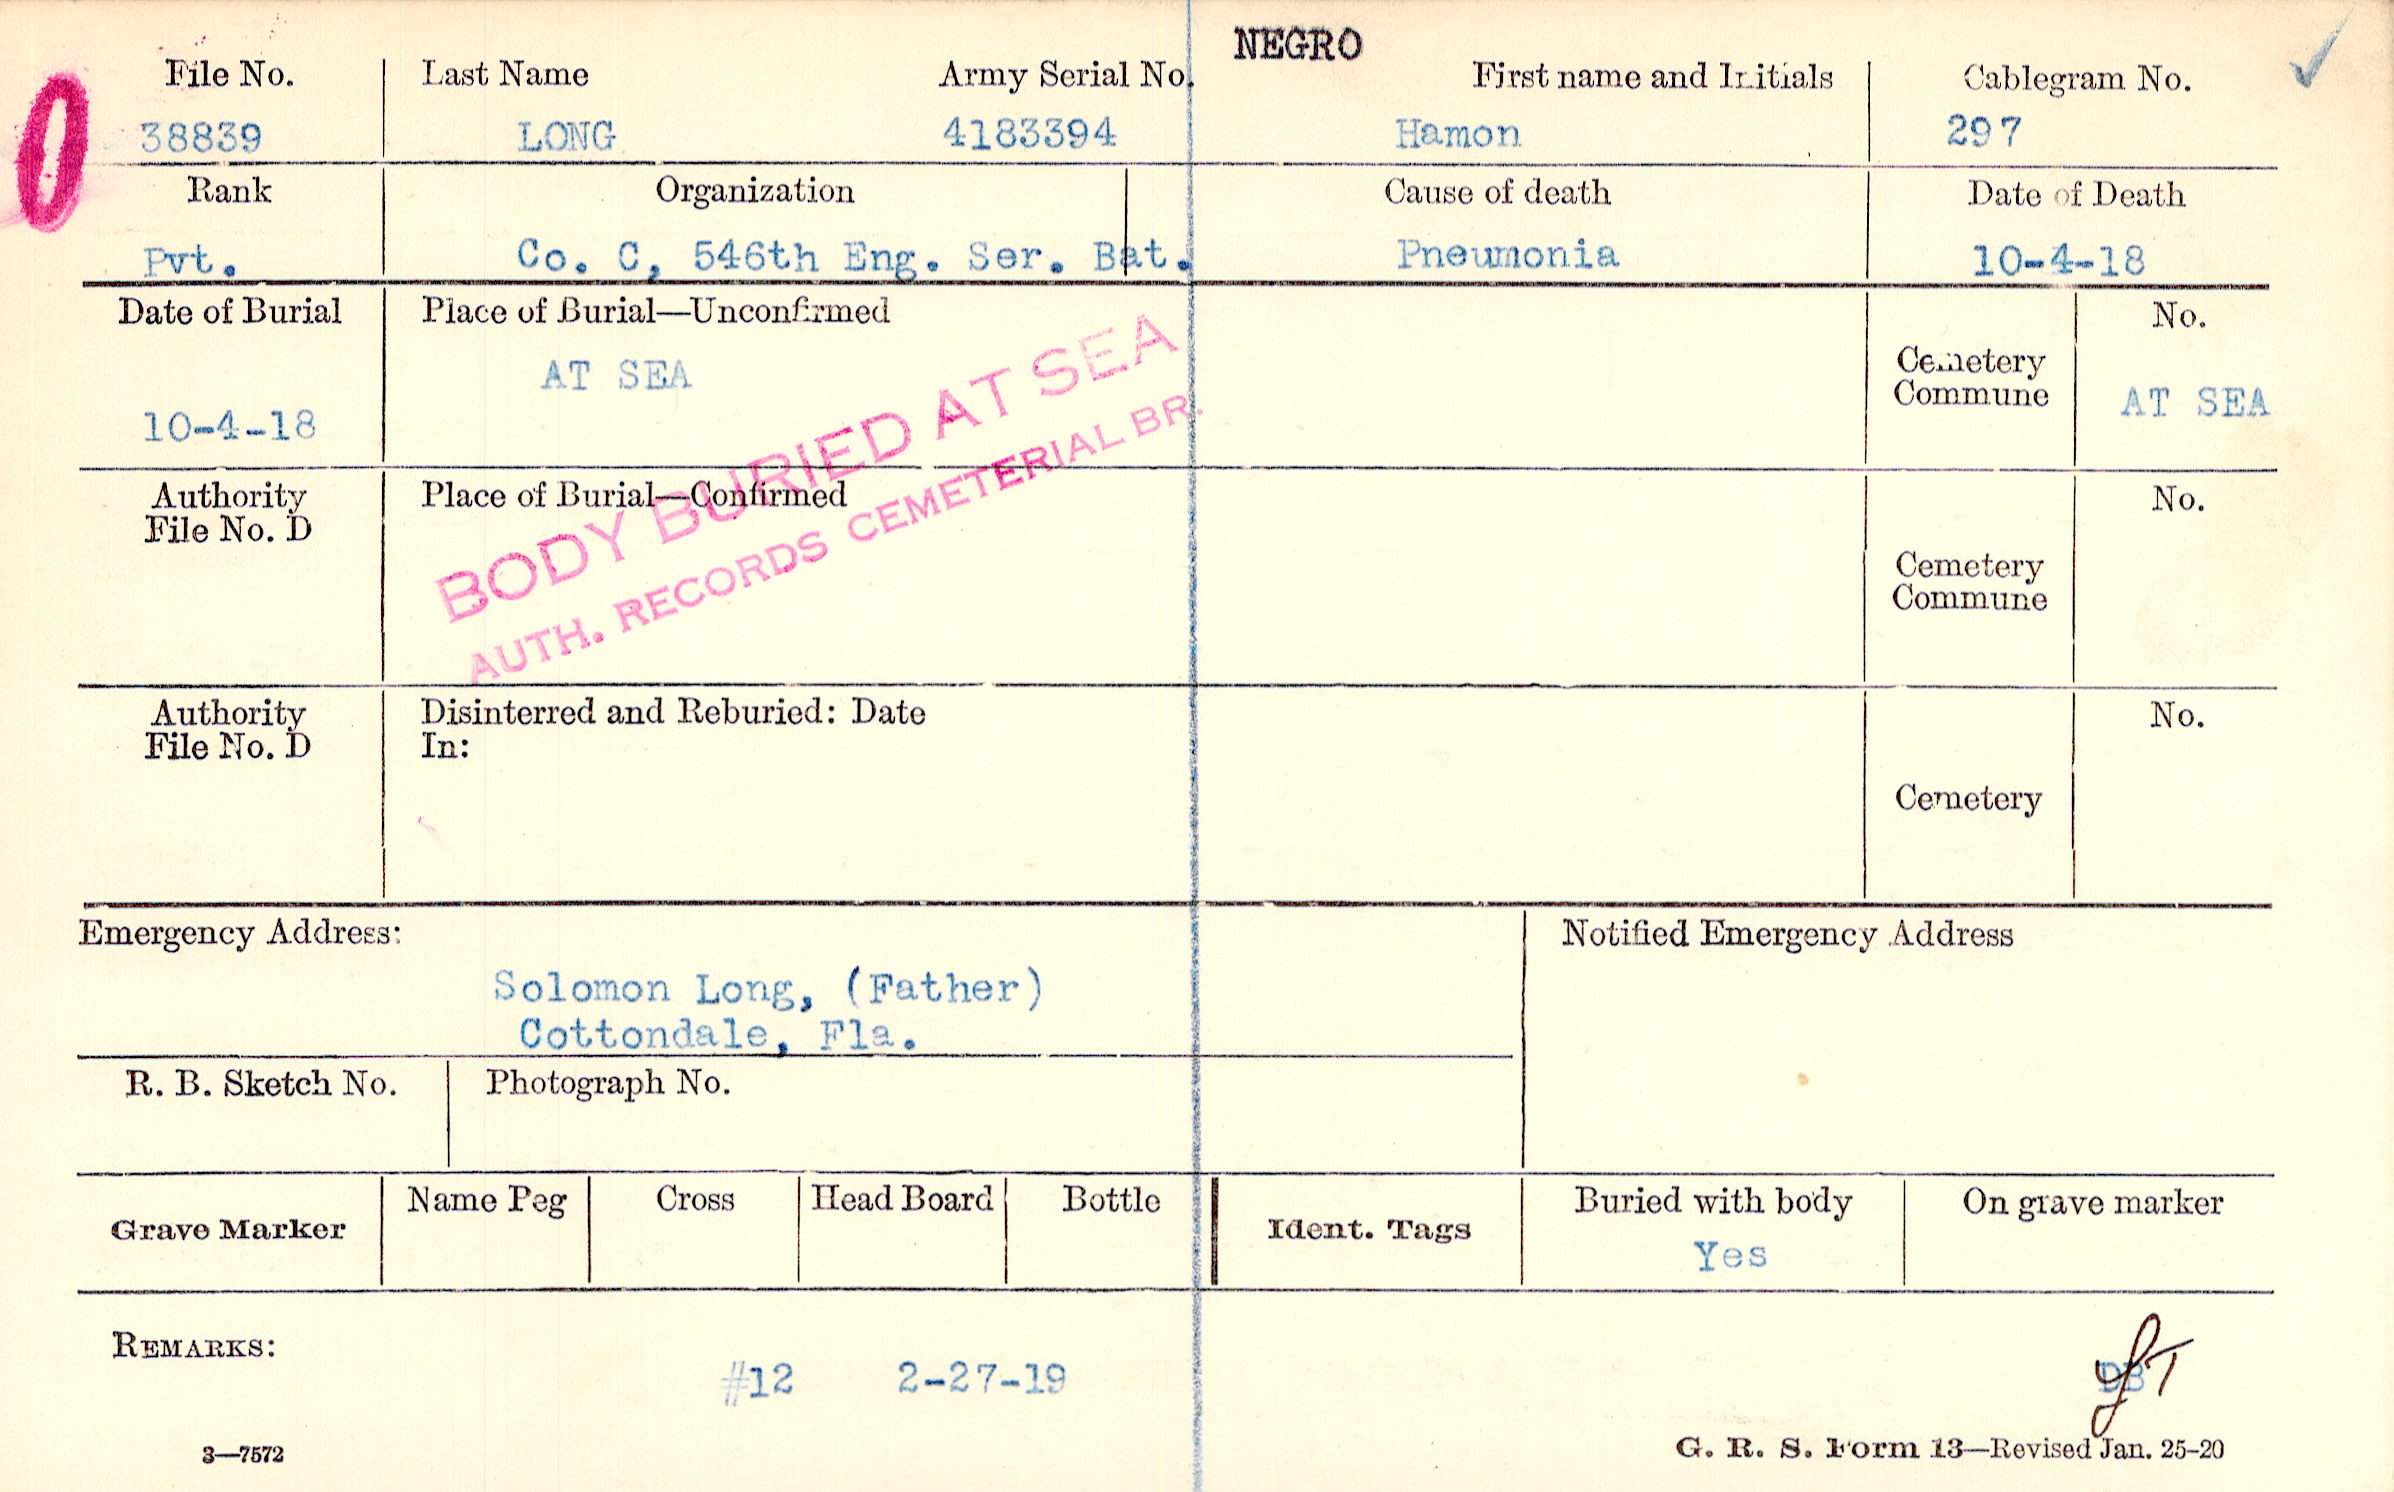 NEGRO
File No. Last Name Army Serial No. First name and Initials Cablegram No.
38839 LONG 4183394 Hamon 297
Rank Organization Cause of death Date of Death
Pvt. Co. C, 546th Eng. Ser. Bat. Pneumonia 10-4-18
Date of Burial Place of Burial—Unconfirmed No.
AT SEA Cemetery
Commune AT SEA
10-4-18
BODY BURIED AT SEA
AUTH. RECORDS CEMETERIAL BR.
Authority Place of Burial—Confirmed No.
File No. D
Cemetery
Commune
Authority Disinterred and Reburied: Date No.
File No. D In:
Cemetery
Emergency Address: Notified Emergency Address
Solomon Long, (Father)
Cottondale, Fla.
R. B. Sketch No. Photograph No.
Name Peg Cross Head Board Bottle Buried with body On grave marker
Grave Marker Ident. Tags
Yes
REMARKS:
#12 2-27-19 DB
3—7572 G. R. S. Form 13—Revised Jan. 25-20